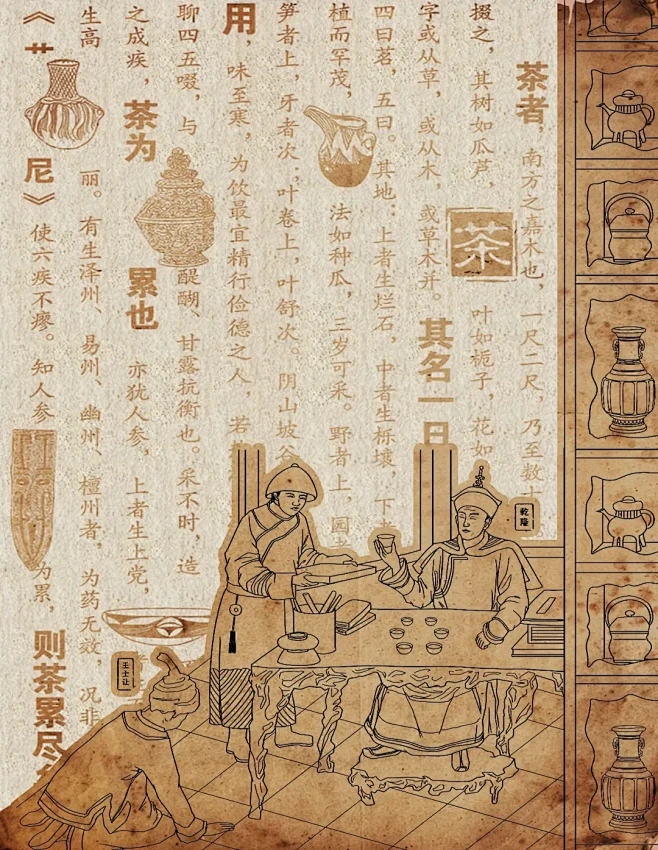 茶者，南方之嘉木也，一尺二尺，乃至数十
掇之，其树如瓜芦，叶如栀子，花如
茶
字或从草，或从木，或草木并。其名一曰
四曰茗，五曰。其地：上者生烂石，中者生栎壤，下者
植而罕茂，法如种瓜，三岁可采。野者上，园者
笋者上，牙者次；叶卷上，叶舒次。阴山坡谷
用，味至寒，为饮最宜精行俭德之人，若
聊四五啜，与醍醐、甘露抗衡也。采不时，造
之成疾，茶为累也亦犹人参，上者生上党，
生高丽。有生泽州、易州、幽州、檀州者，为药无效，况非
《尼》使六疾不瘳。知人参为累，则茶累尽
乾隆
王士让